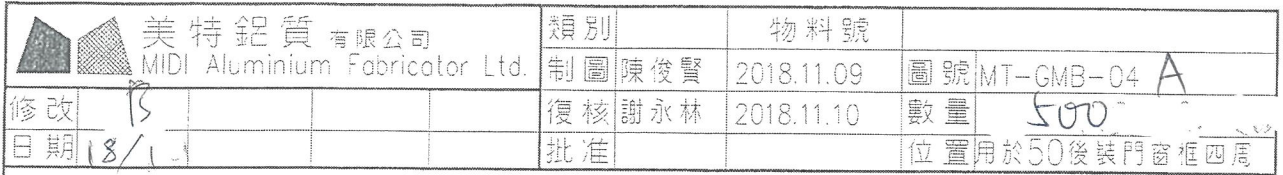 美特鋁質有限公司
MIDI Aluminium Fabricator Ltd.
類別 物料號
制圖 陳俊賢 2018.11.09 圖號 MT-GMB-04 A
修改 B 復核 謝永林 2018.11.10 數量 500
日期 18/1 批准 位置 用於50後裝門窗框四周